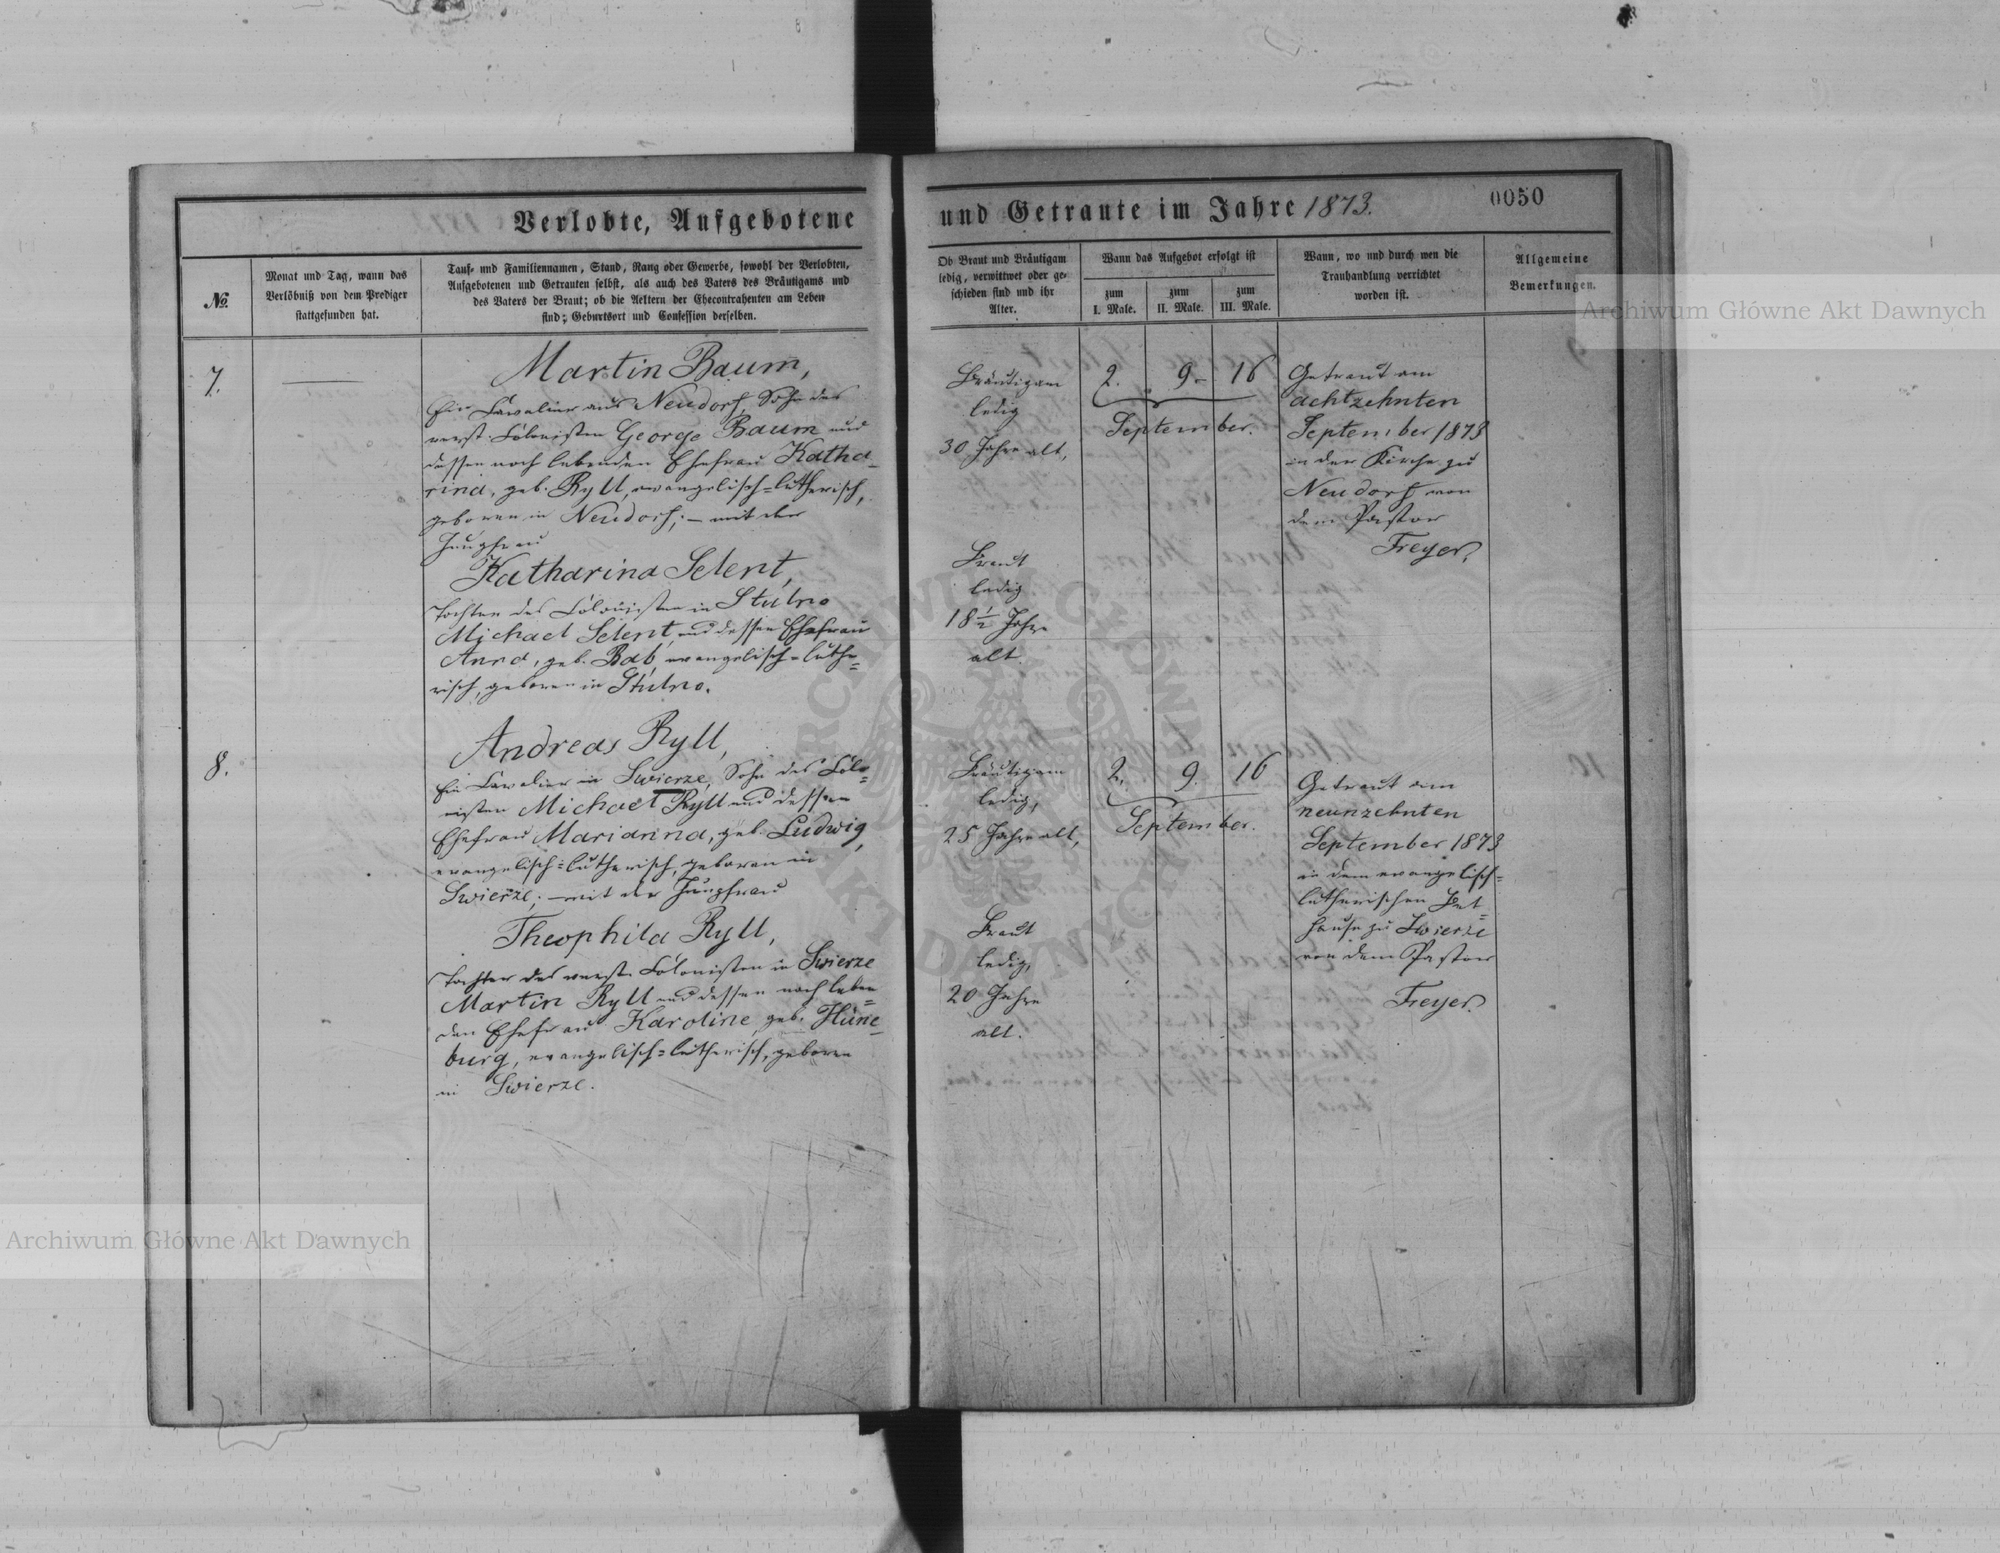 Verlobte, Aufgebotene
und Getraute im Jahre 1873.
0050
№
Monat und Tag, wann das
Verlöbniß von dem Prediger
stattgefunden hat.
Tauf- und Familiennamen, Stand, Rang oder Gewerbe, sowohl der Verlobten,
Aufgebotenen und Getrauten selbst, als auch des Vaters des Bräutigams und
des Vaters der Braut; ob die Aeltern der Ehecontrahenten am Leben
sind; Geburtsort und Confession derselben.
Ob Braut und Bräutigam
ledig, verwittwet oder ge-
schieden sind und ihr
Alter.
Wann das Aufgebot erfolgt ist
zum
I. Male.
zum
II. Male.
zum
III. Male.
Wann, wo und durch wen die
Trauhandlung verrichtet
worden ist.
Allgemeine
Bemerkungen.
7.
Martin Baum,
Ein Cavalier aus Neudorf, Sohn des
verst. Colonisten George Baum und
dessen noch lebenden Ehefrau Katha-
rina, geb. Ryll, evangelisch=lutherisch,
geboren in Neudorf; – mit der
Jungfrau
Katharina Selent,
Tochter des Colonisten in Stulno
Michael Selent und dessen Ehefrau
Anna, geb. Bab, evangelisch=luthe=
risch, geboren in Stulno.
Bräutigam
ledig
30 Jahre alt,
Braut
ledig
18 1/2 Jahre
alt.
2. 9– 16
September.
Getraut am
achtzehnten
September 1873
in der Kirche zu
Neudorf von
dem Pastor
Freyer.
8.
Andreas Ryll,
Ein Cavalier in Swierze, Sohn des Colo=
nisten Michael Ryll und dessen
Ehefrau Marianna, geb. Ludwig,
evangelisch=lutherisch, geboren in
Swierze; – mit der Jungfrau
Theophila Ryll,
Tochter des verst. Colonisten in Swierze
Martin Ryll und dessen noch leben=
den Ehefrau Karoline, geb. Hüne=
burg, evangelisch=lutherisch, geboren
in Swierze.
Bräutigam
ledig,
25 Jahre alt,
Braut
ledig,
20 Jahre
alt.
2. 9. 16
September.
Getraut am
neunzehnten
September 1873
in dem evangelisch=
lutherischen Bet=
hause zu Swierze
von dem Pastor
Freyer.
Archiwum Główne Akt Dawnych
Archiwum Główne Akt Dawnych
ARCHIWUM GŁÓWNE
AKT DAWNYCH